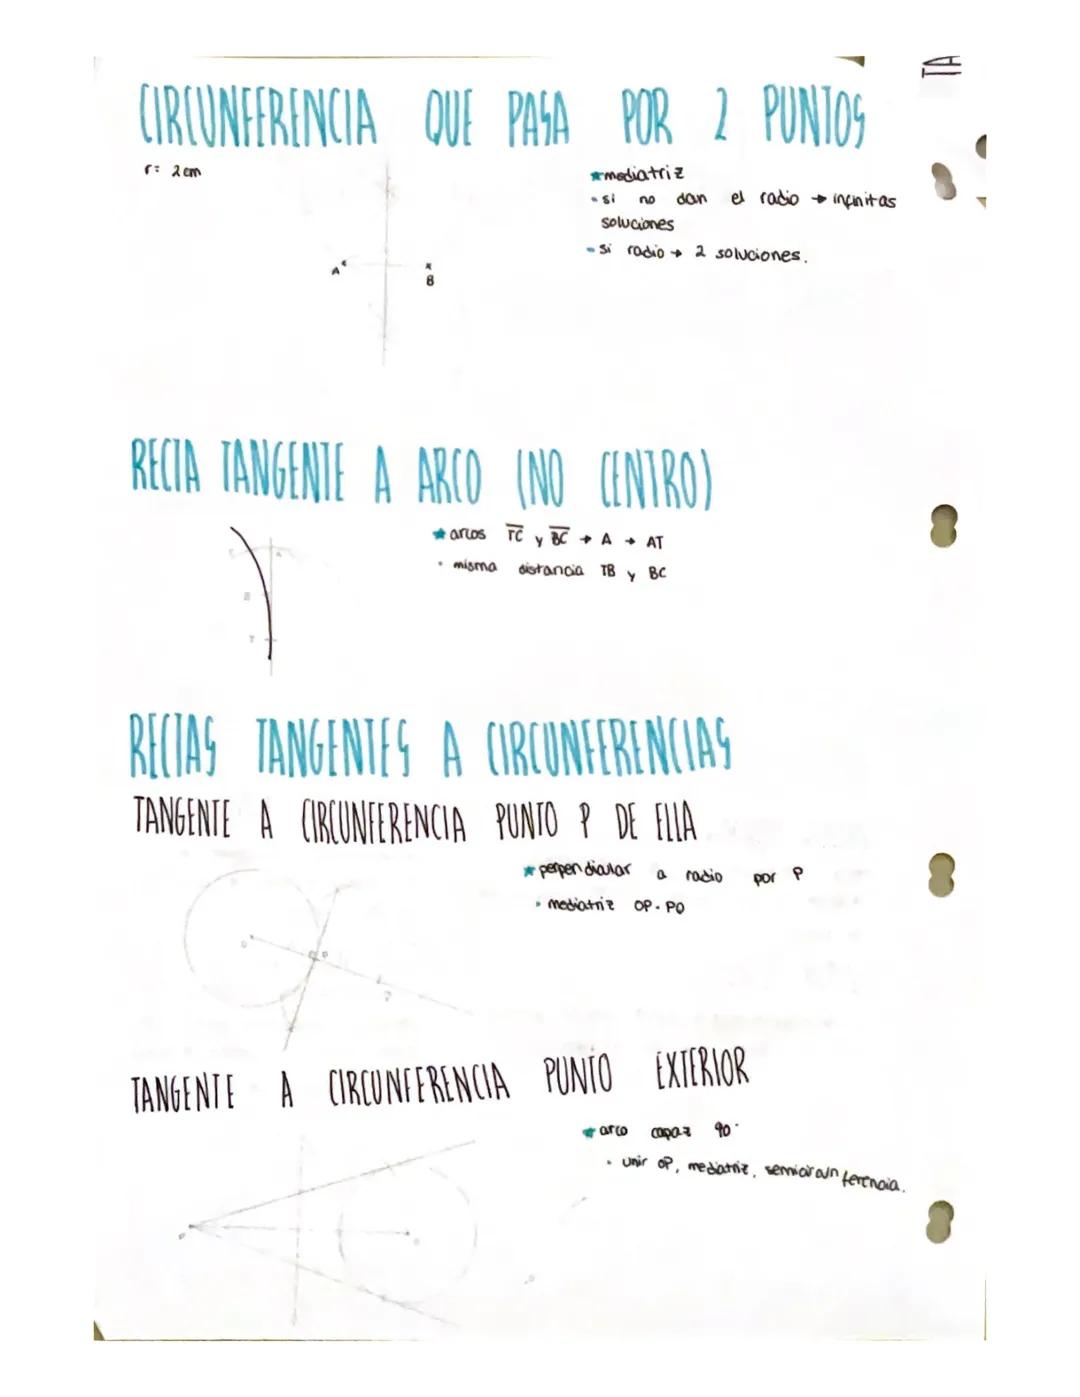 CIRCUNFERENCIA QUE PASA POR 2 PUNTOS
r= 2cm
★mediatriz
• si no dan el radio → infinitas
soluciones
• si radio → 2 soluciones.
A
B
RECTA TANGENTE A ARCO (NO CENTRO)
★ arcos TC y BC → A → AT
• misma distancia TB y BC
C
A
B
T
RECTAS TANGENTES A CIRCUNFERENCIAS
TANGENTE A CIRCUNFERENCIA PUNTO P DE ELLA
★ perpendicular a radio por P
• mediatriz OP-PQ
O
P
TANGENTE A CIRCUNFERENCIA PUNTO EXTERIOR
★ arco capaz 90°
• unir OP, mediatriz, semicircunferencia.
P
O